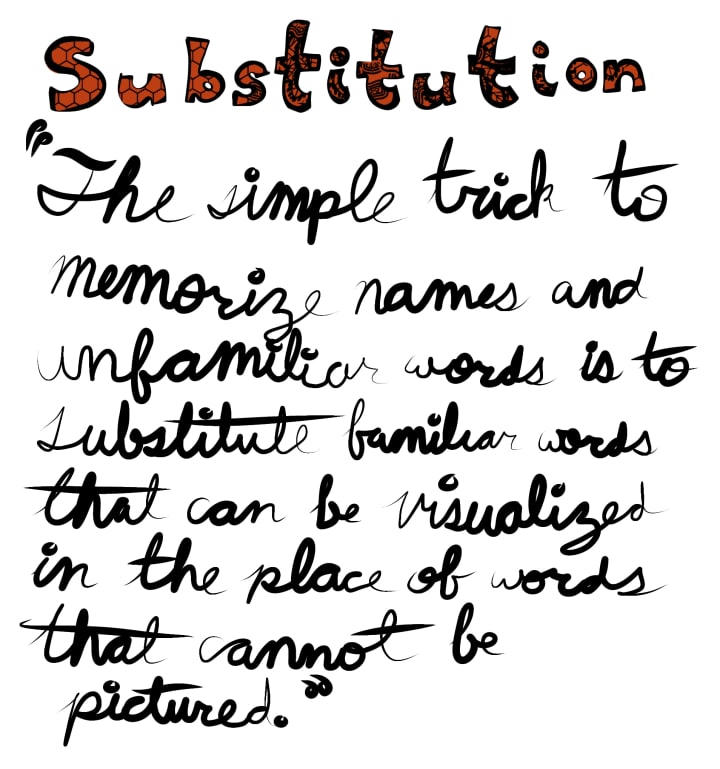 Substitution
"The simple trick to
memorize names and
unfamiliar words is to
substitute familiar words
that can be visualized
in the place of words
that cannot be
pictured."